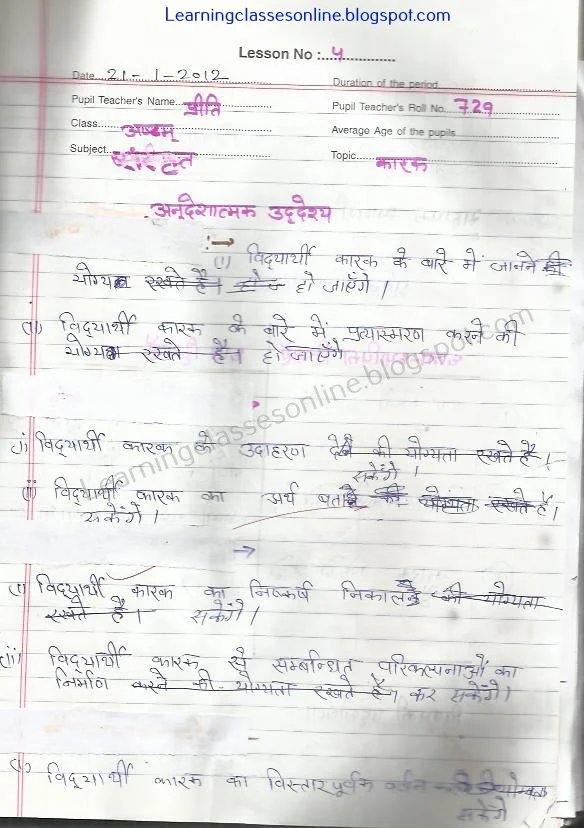 Learningclassesonline.blogspot.com
Lesson No :...4..............
Date...21-1-2012
Duration of the period
Pupil Teacher's Name...प्रीति
Pupil Teacher's Roll No...729
Class...अष्टम्
Average Age of the pupils
Subject
Topic...कारक
अनुदेशात्मक उद्देश्य
(i) विद्यार्थी कारक के बारे में जानने की
योग्य रखते हैं। हो जाएँगे।
(ii) विद्यार्थी कारक के बारे में प्रत्यास्मरण करने की
योग्य रखते हैं। हो जाएँगे
Learningclassesonline.blogspot.com
(i) विद्यार्थी कारक के उदाहरण देने की योग्यता रखते हैं।
सकेंगे।
(ii) विद्यार्थी कारक का अर्थ बता की योग्यता रखते हैं।
सकेंगे।
(i) विद्यार्थी कारक का निष्कर्ष निकाल की योग्यता
रखते हैं। सकेंगे।
(ii) विद्यार्थी कारक से सम्बन्धित परिकल्पनाओं का
निर्माण करने की योग्यता रखते हैं। कर सकेंगे।
(i) विद्यार्थी कारक का विस्तारपूर्वक
सकेंगे